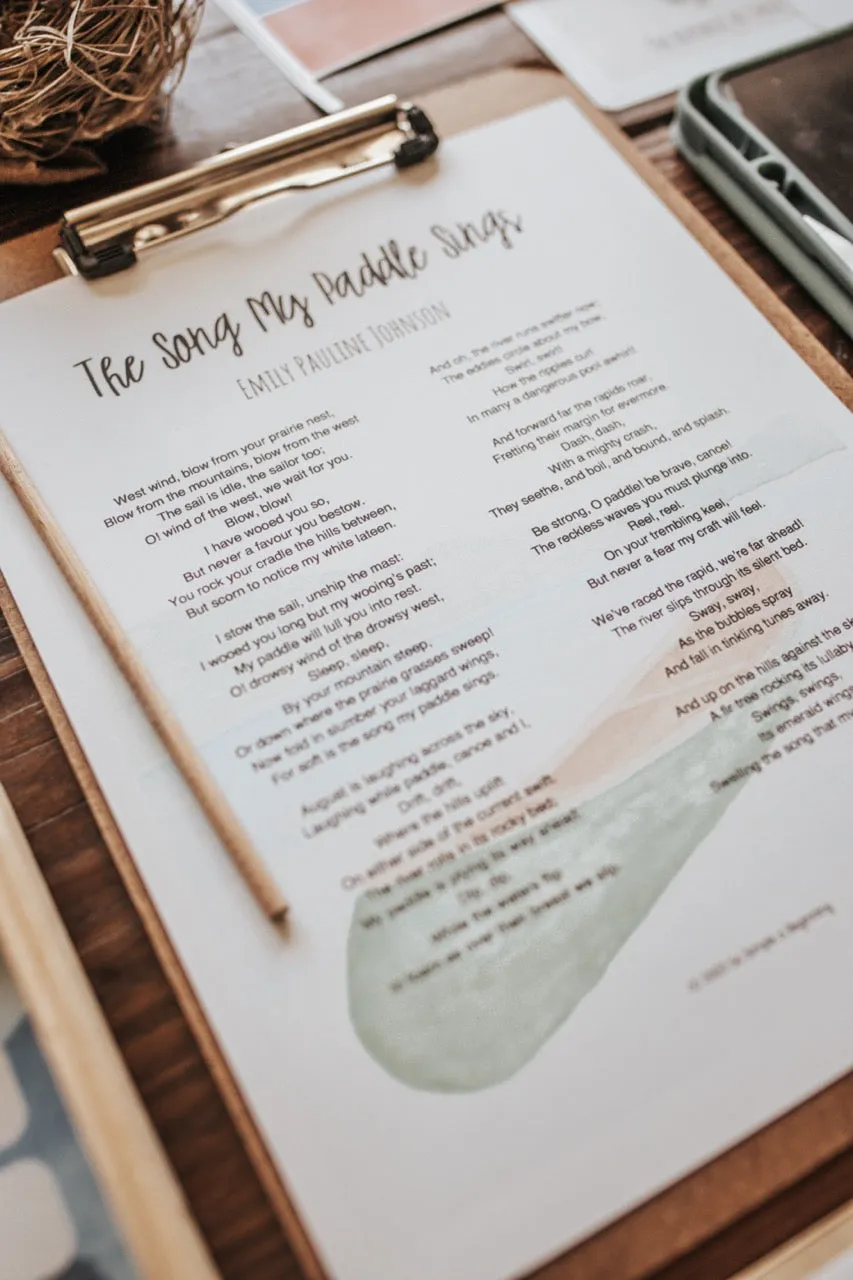 The Song My Paddle Sings
Emily Pauline Johnson
West wind, blow from your prairie nest,
Blow from the mountains, blow from the west
The sail is idle, the sailor too;
O! wind of the west, we wait for you.
Blow, blow!
I have wooed you so,
But never a favour you bestow.
You rock your cradle the hills between,
But scorn to notice my white lateen.
I stow the sail, unship the mast:
I wooed you long but my wooing's past;
My paddle will lull you into rest.
O! drowsy wind of the drowsy west,
Sleep, sleep,
By your mountain steep,
Or down where the prairie grasses sweep!
Now fold in slumber your laggard wings,
For soft is the song my paddle sings.
August is laughing across the sky,
Laughing while paddle, canoe and I,
Drift, drift,
Where the hills uplift
On either side of the current swift.
The river rolls in its rocky bed;
My paddle is plying its way ahead;
Dip, dip,
While the waters flip
In foam as over their breast we slip.
And oh, the river runs swifter now;
The eddies circle about my bow.
Swirl, swirl!
How the ripples curl
In many a dangerous pool awhirl!
And forward far the rapids roar,
Fretting their margin for evermore.
Dash, dash,
With a mighty crash,
They seethe, and boil, and bound, and splash.
Be strong, O paddle! be brave, canoe!
The reckless waves you must plunge into.
Reel, reel.
On your trembling keel,
But never a fear my craft will feel.
We've raced the rapid, we're far ahead!
The river slips through its silent bed.
Sway, sway,
As the bubbles spray
And fall in tinkling tunes away.
And up on the hills against the
A fir tree rocking its lullaby
Swings, swings,
Its emerald wings
Swelling the song that